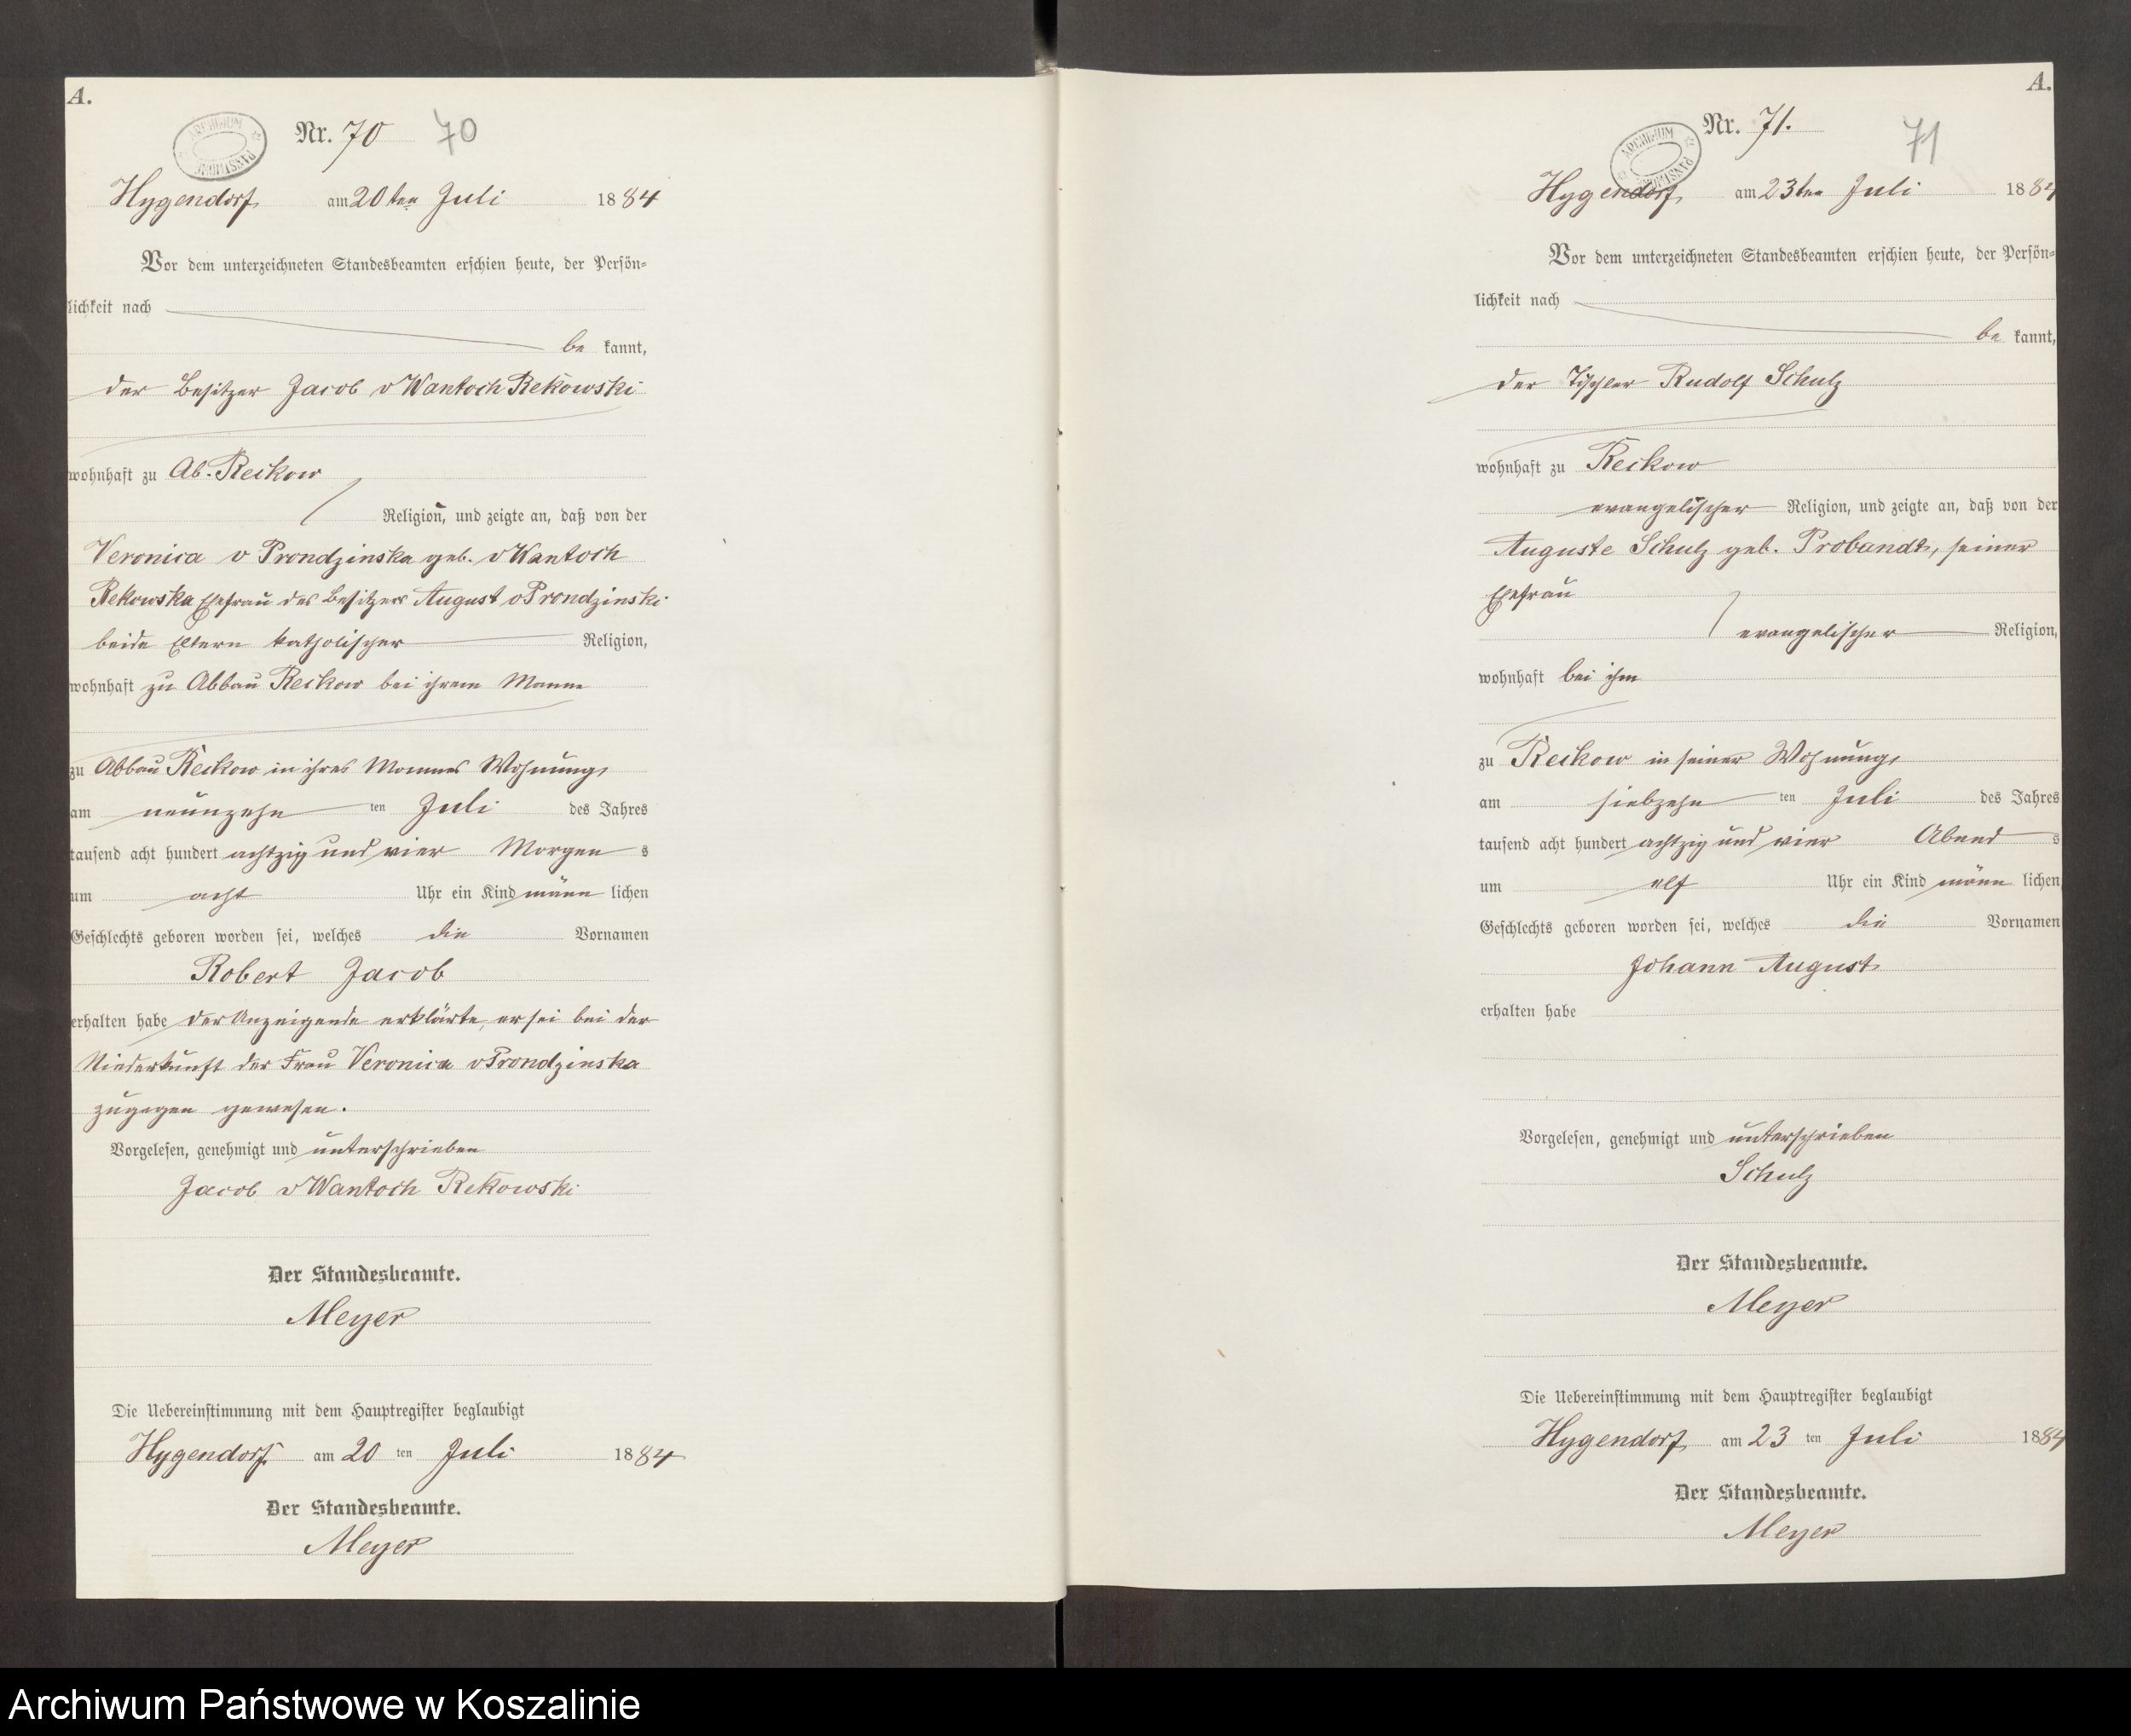 A.
Nr. 70 70
ARCHIWUM PAŃSTWOWE
Hygendorf, am 20ten Juli 1884
Vor dem unterzeichneten Standesbeamten erschien heute, der Persön-
lichkeit nach
be kannt,
der Besitzer Jacob v Wantoch Rekowski
wohnhaft zu Ab. Reckow
Religion, und zeigte an, daß von der
Veronica v Prondzinska geb. v Wantoch
Rekowska Ehefrau des Besitzers August v Prondzinski
beide Eltern katholischer Religion,
wohnhaft zu Abbau Reckow bei ihrem Manne
zu Abbau Reckow in ihres Mannes Wohnung,
am neunzehn ten Juli des Jahres
tausend acht hundert achtzig und vier Morgen s
um acht Uhr ein Kind männ lichen
Geschlechts geboren worden sei, welches die Vornamen
Robert Jacob
erhalten habe der Anzeigende erklärte, er sei bei der
Niederkunft der Frau Veronica v Prondzinska
zugegen gewesen.
Vorgelesen, genehmigt und unterschrieben
Jacob v Wantoch Rekowski
Der Standesbeamte.
Meyer
Die Uebereinstimmung mit dem Hauptregister beglaubigt
Hygendorf. am 20 ten Juli 1884
Der Standesbeamte.
Meyer
A.
Nr. 71. 71
ARCHIWUM PAŃSTWOWE
Hygendorf, am 23ten Juli 1884
Vor dem unterzeichneten Standesbeamten erschien heute, der Persön-
lichkeit nach
be kannt,
der Tischler Rudolf Schulz
wohnhaft zu Reckow
evangelischer Religion, und zeigte an, daß von der
Auguste Schulz geb. Probandt, seiner
Ehefrau
evangelischer Religion,
wohnhaft bei ihm
zu Reckow in seiner Wohnung,
am siebzehn ten Juli des Jahres
tausend acht hundert achtzig und vier Abend s
um elf Uhr ein Kind männ lichen
Geschlechts geboren worden sei, welches die Vornamen
Johann August
erhalten habe
Vorgelesen, genehmigt und unterschrieben
Schulz
Der Standesbeamte.
Meyer
Die Uebereinstimmung mit dem Hauptregister beglaubigt
Hygendorf, am 23 ten Juli 1884
Der Standesbeamte.
Meyer
Archiwum Państwowe w Koszalinie